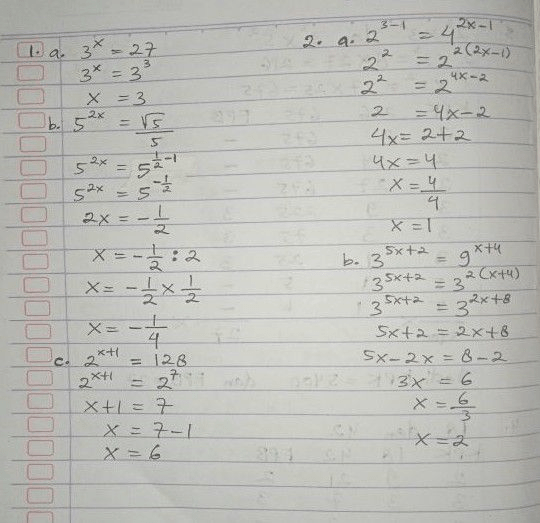 1. a. 3^x = 27
3^x = 3^3
x = 3
b. 5^{2x} = √5/5
5^{2x} = 5^{1/2 - 1}
5^{2x} = 5^{-1/2}
2x = -1/2
x = -1/2 : 2
x = -1/2 × 1/2
x = -1/4
c. 2^{x+1} = 128
2^{x+1} = 2^7
x+1 = 7
x = 7-1
x = 6
2. a. 2^{3-1} = 4^{2x-1}
2^2 = 2^{2(2x-1)}
2^2 = 2^{4x-2}
2 = 4x-2
4x = 2+2
4x = 4
x = 4/4
x = 1
b. 3^{5x+2} = 9^{x+4}
3^{5x+2} = 3^{2(x+4)}
3^{5x+2} = 3^{2x+8}
5x+2 = 2x+8
5x-2x = 8-2
3x = 6
x = 6/3
x = 2